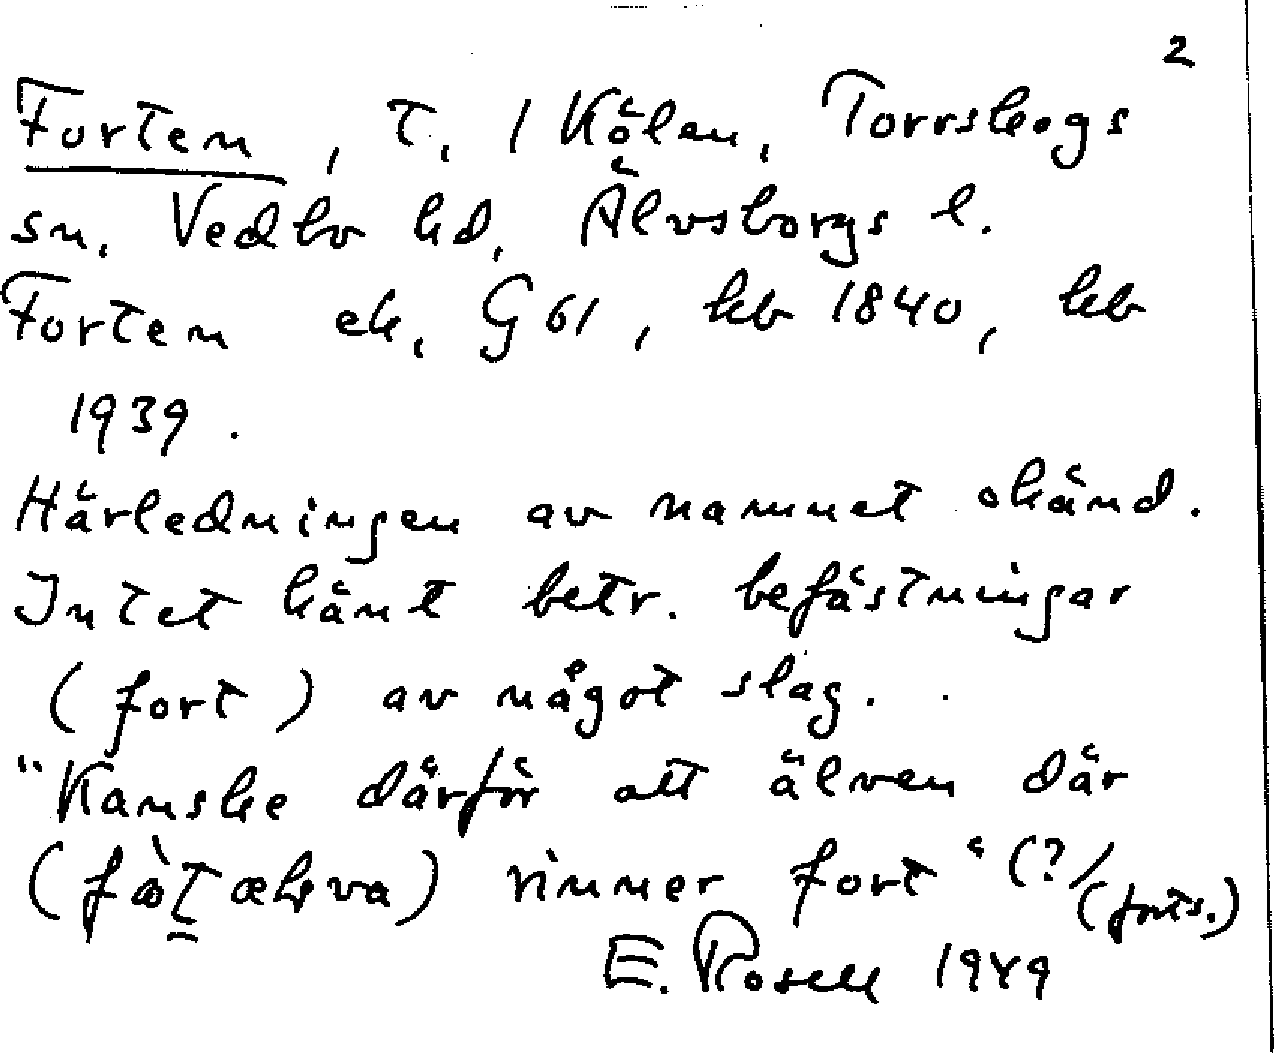 2
Forten, t. 1 Kölen, Torrskogs
sn. Vedbo hd, Älvsborgs l.
Forten ek. G 61, kb 1840, kb
1939.
Härledningen av namnet okänd.
Intet känt betr. befästningar
(fort) av något slag.
"Kanske därför att älven där
rinner fort" (?/
(forts.)
E. Rosell 1949